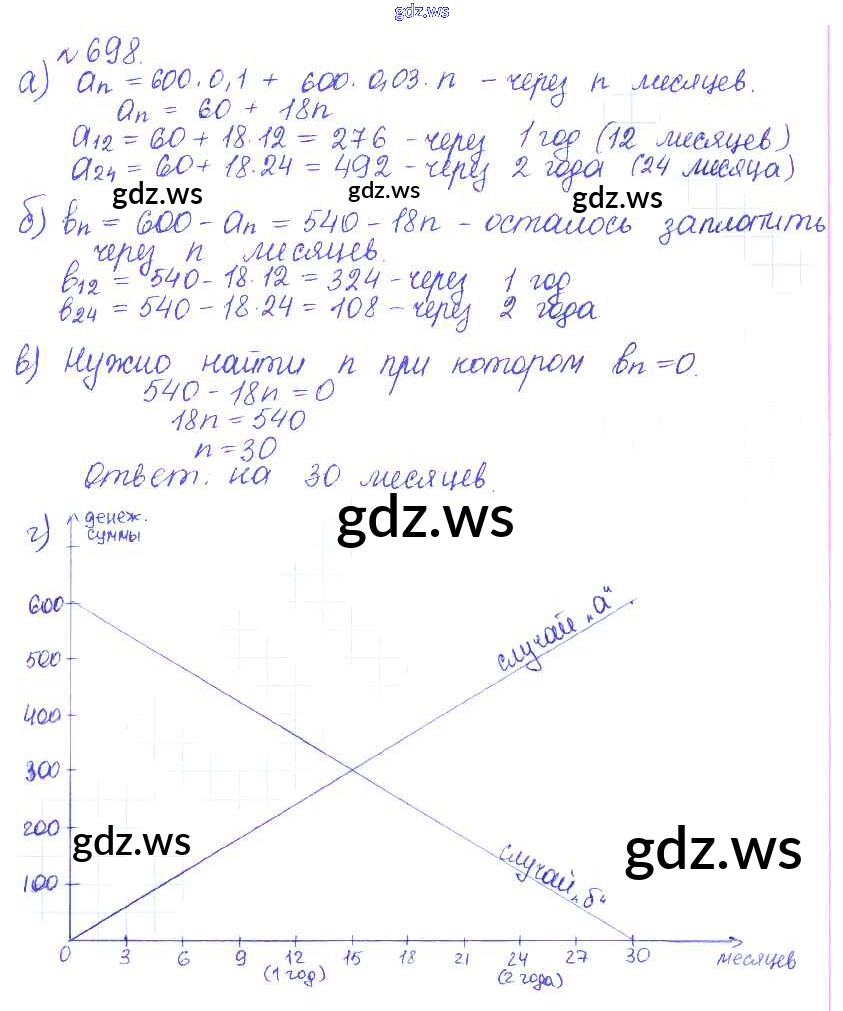 gdz.ws
№698.
а) aₙ = 600·0,1 + 600·0,03·n – через n месяцев.
aₙ = 60 + 18n
a₁₂ = 60 + 18·12 = 276 – через 1 год (12 месяцев)
a₂₄ = 60 + 18·24 = 492 – через 2 года (24 месяца)
gdz.ws gdz.ws gdz.ws
б) bₙ = 600 – aₙ = 540 – 18n – осталось заплатить
через n месяцев.
b₁₂ = 540 – 18·12 = 324 – через 1 год
b₂₄ = 540 – 18·24 = 108 – через 2 года
в) Нужно найти n при котором bₙ = 0.
540 – 18n = 0
18n = 540
n = 30
Ответ: на 30 месяцев.
gdz.ws
г) денеж.
суммы
600
случай „а“
500
400
300
200
gdz.ws gdz.ws
случай „б“
100
0 3 6 9 12 15 18 21 24 27 30 месяцев
(1 год) (2 года)